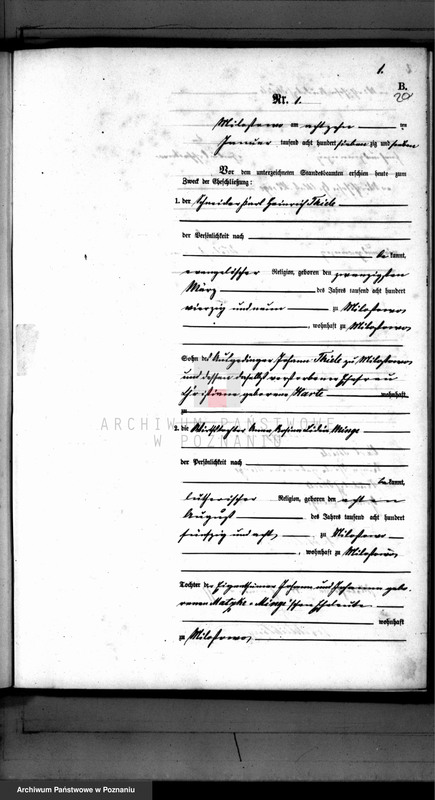 1.
B.
20
Nr. 1.
Milostowo am achtzehn ten
Januar tausend acht hundert siebenzig und sieben
Vor dem unterzeichneten Standesbeamten erschien heute zum
Zweck der Eheschließung:
1. der Schneider Karl Heinrich Thiele
der Persönlichkeit nach
bekannt,
evangelischer Religion, geboren den zwanzigsten
März des Jahrs tausend acht hundert
vierzig und neun zu Milostowo
, wohnhaft zu Milostowo
Sohn des Ausgedinger Johann Thiele zu Milostowo
und dessen daselbst verstorbene Ehefrau
Christiane geborene wohnhaft
zu
ARCHIWUM PAŃSTWOWE
W POZNANIU
2. die Anna Rosina Minge
der Persönlichkeit nach
bekannt,
lutherischer Religion, geboren den achten
August des Jahrs tausend acht hundert
fünfzig und acht, zu Milostowo
, wohnhaft zu Milostowo
Tochter der Eigenthümer Johann und Johanna gebo-
renen Matzke - Minge'schen Eheleute
wohnhaft
zu Milostowo
Archiwum Państwowe w Poznaniu